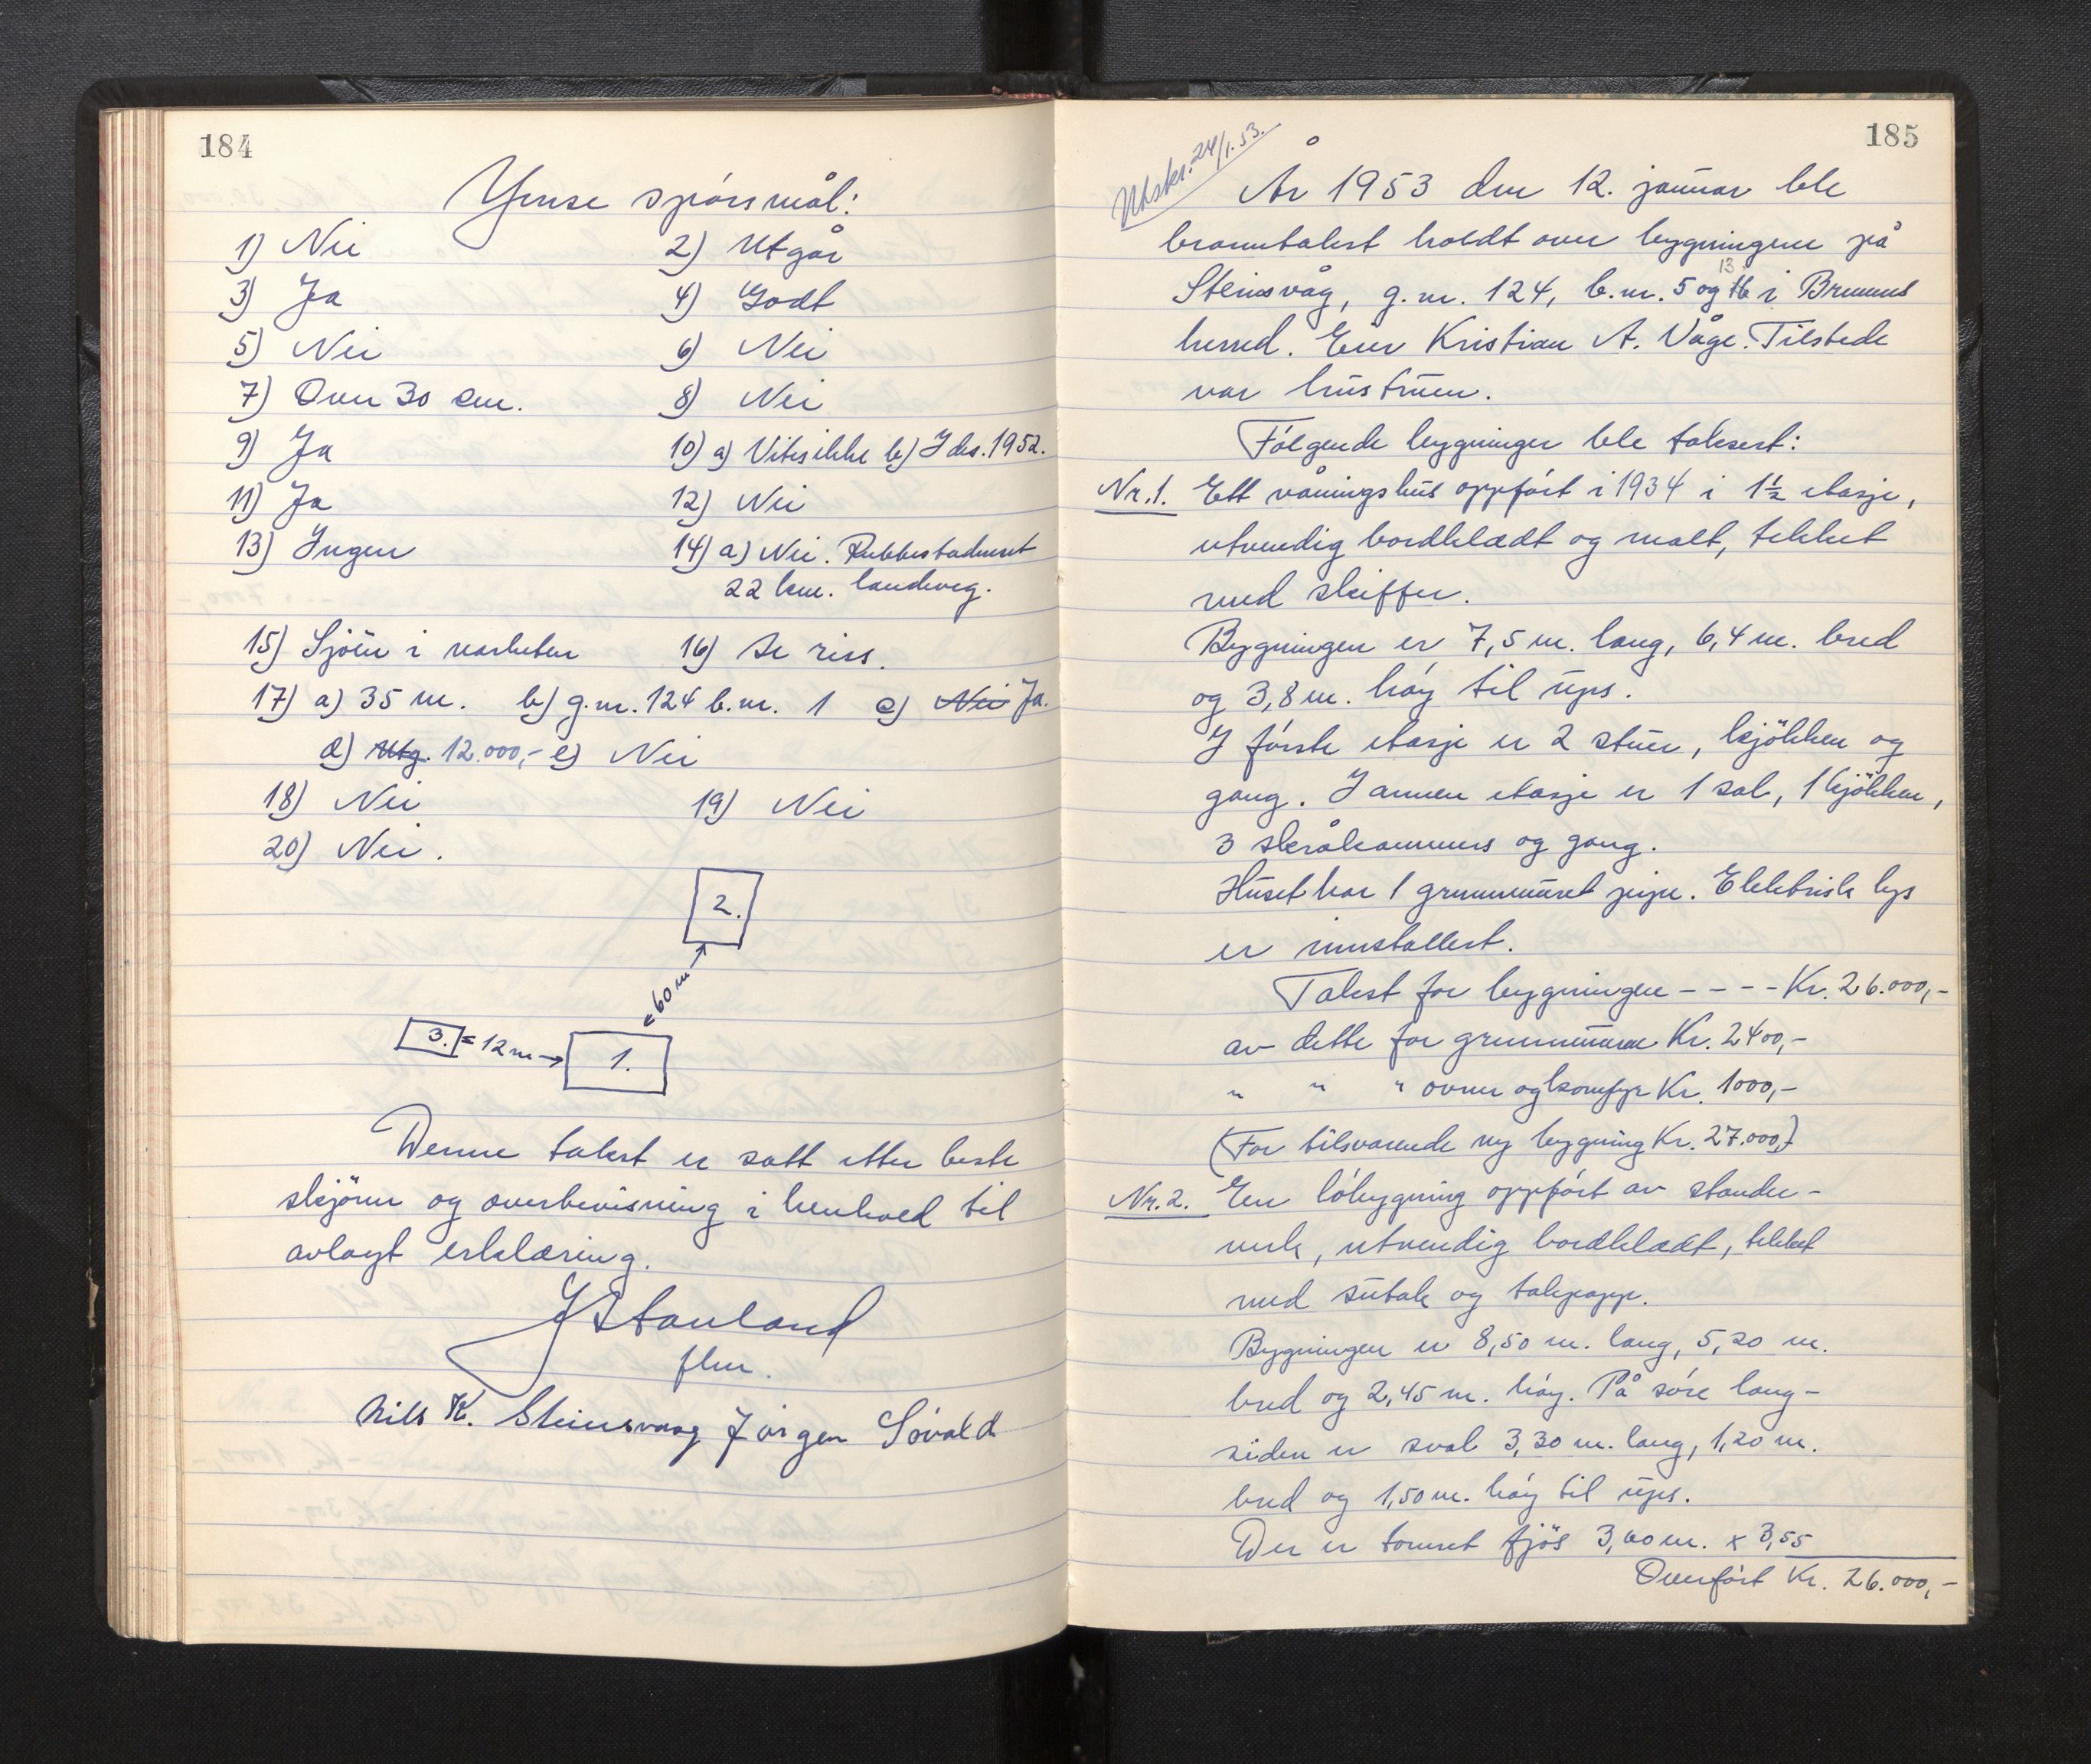 184
Ymse spørsmål:
1) Nei 2) Utgår
3) Ja 4) Godt
5) Nei 6) Nei
7) Over 30 cm. 8) Nei
9) Ja 10) a) Vites ikke b) I des. 1952.
11) Ja 12) Nei
13) Ingen 14) a) Nei. Rubbestadneset
22 km. landeveg.
15) Sjöen i nærheten 16) Se riss.
17) a) 35 m. b) g.nr. 124 b.nr. 1 c) Nei Ja.
d) Utg. 12.000,- e) Nei
18) Nei 19) Nei
20) Nei.
2.
60 m
3. 12 m 1.
Denne takst er satt etter beste
skjönn og overbevisning i henhold til
avlagt erklæring.
J Stavland
fhm.
Nils K. Steinsvaag Jørgen Søvold
185
Utskr. 24/1.53.
År 1953 den 12. januar ble
branntakst holdt over bygningene på
13
Steinsvåg, g.nr. 124, b.nr. 5 og 16 i Bremnes
herred. Eier Kristian A. Våge. Tilstede
var hustruen.
Følgende bygninger ble taksert:
Nr. 1. Ett våningshus oppført i 1934 i 1½ etasje,
utvendig bordkledt og malt, tekket
med skiffer.
Bygningen er 7,5 m. lang, 6,4 m. bred
og 3,8 m. høy til ups.
I første etasje er 2 stuer, kjökken og
gang. I annen etasje er 1 sal, 1 kjökken,
3 skråkammers og gang.
Huset har 1 grunnmuret pipe. Elektrisk lys
er innstallert.
Takst for bygningen - - - - Kr. 26.000,-
av dette for grunnmuren Kr. 2400,-
" " " ovner og komfyr Kr. 1000,-
(For tilsvarende ny bygning Kr. 27.000,-)
Nr. 2. En løbygning oppført av stander-
verk, utvendig bordkledt, tekket
med sutak og takpapp.
Bygningen er 8,50 m. lang, 5,20 m.
bred og 2,45 m. høy. På søre lang-
siden er sval 3,30 m. lang, 1,20 m.
bred og 1,50 m. høy til ups.
Der er tømret fjös 3,60 m. x 3,55
Overført Kr. 26.000,-